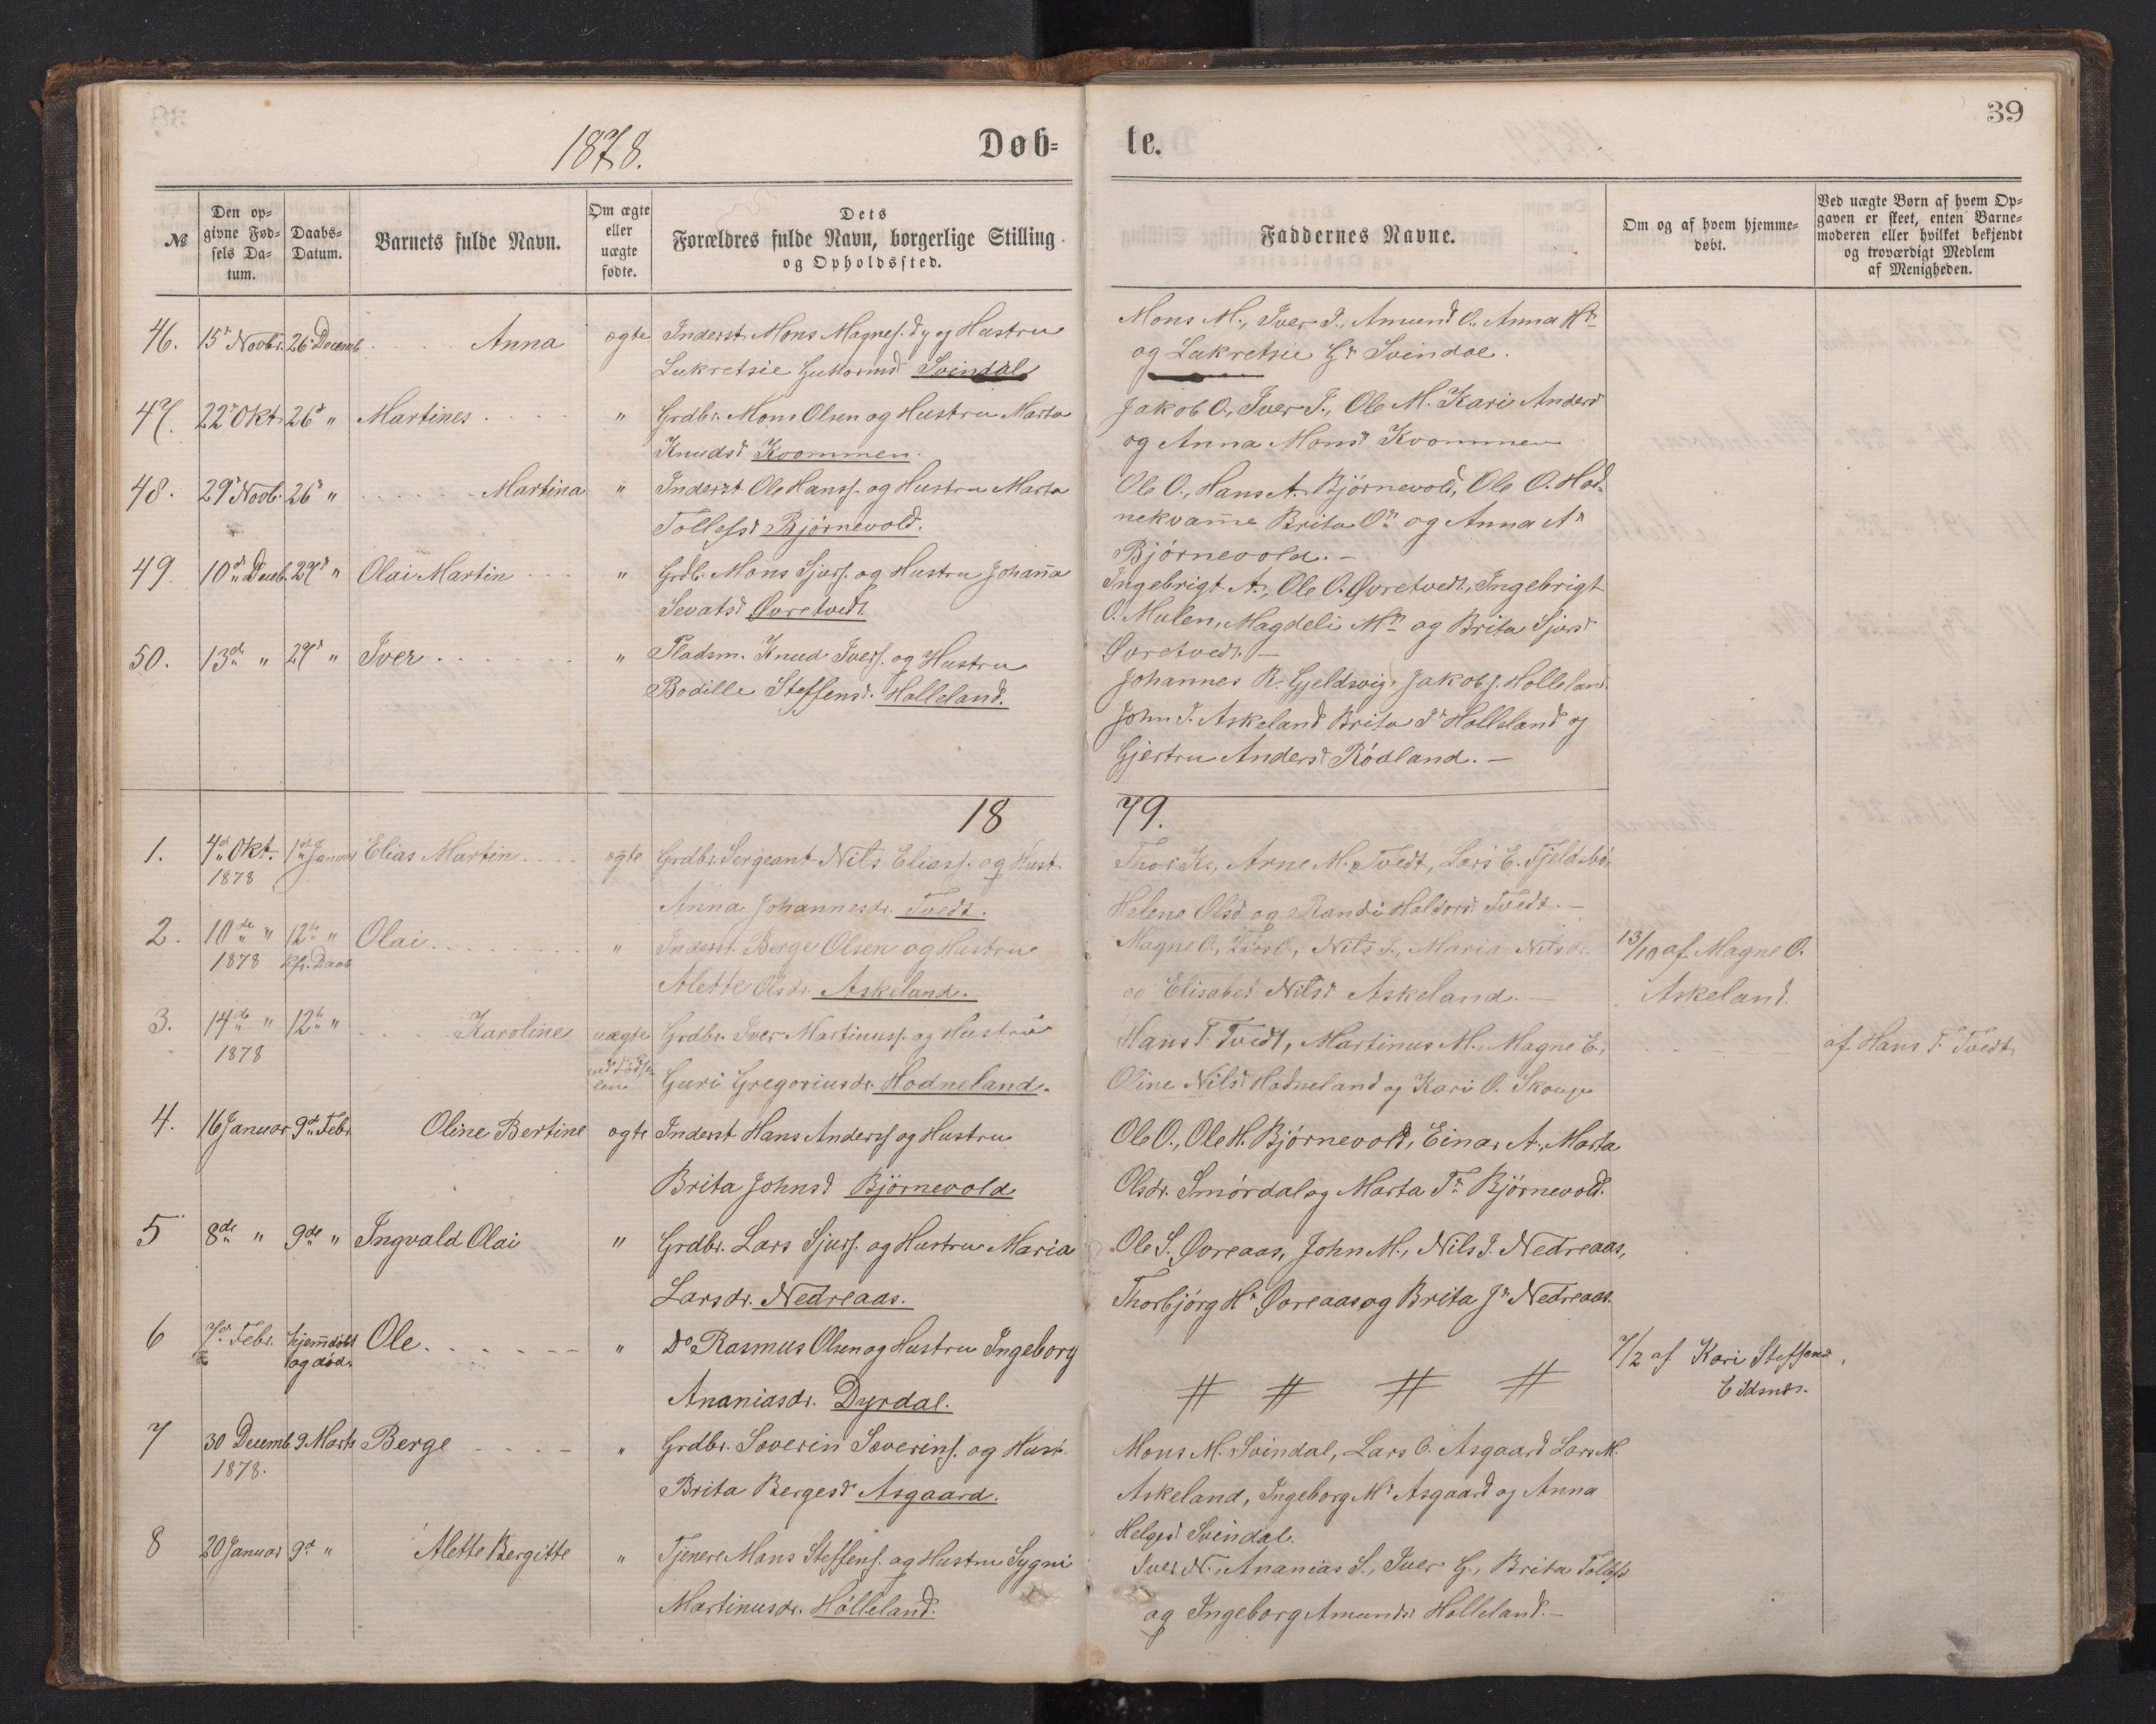 39
1878.
Døb-
te.
№
Den op-
givne Fød-
sels Da-
tum.
Daabs-
Datum.
Barnets fulde Navn.
Om ægte
eller
uægte
fødte.
Dets
Forældres fulde Navn, borgerlige Stilling
og Opholdssted.
Faddernes Navne.
Om og af hvem hjemme-
døbt.
Ved uægte Børn af hvem Op-
gaven er skeet, enten Barne-
moderen eller hvilket bekjendt
og troværdigt Medlem
af Menigheden.
46. 15d Novbr. 26d Decemb Anna ægte Inderst Mons Magnes. og Hustru
Lukretsie Guttormsd Svindal
Mons M., Iver I., Amund O., Anna Hdr
og Lukretsie Gdr Svindal.
47. 22d Okt. 26d " Martines " Grdbr. Mons Olsen og Hustru Marta
Knudsd Kvommen.
Jakob O., Iver I., Ole M. Kari Andersd
og Anna Monsd Kvommen
48. 29d Novb. 26d " Martina " Inderst Ole Hanss. og Hustru Marta
Tollefsd Bjørnevold.
Ole O., Hans A. Bjørnevold, Ole O. Hod-
nekvam̄e Brita Odr og Anna Adr
Bjørnevold. -
49. 10d Decb. 27d " Olai Martin " Grdb. Mons Sjurs. og Hustru Johan̄a
Sevatsd Øvretvedt.
Ingebrigt A., Ole O. Øvretvedt, Ingebrigt
O. Mulen, Magdeli Mdr og Brita Sjursd
Øvretvedt. -
50. 13de " 27d " Iver " Pladsm. Knud Ivers. og Hustru
Bodille Steffensd. Holleland.
Johannes R. Gjeldsvig, Jakob J. Holleland
John I. Askeland Brita Idr Holleland og
Gjertru Andersd Rødland. -
1879.
1. 4de Okt. 1ste Januar Elias Martin ægte Grdbr. Sergeant Nils Eliass. og Hust.
1878
Anna Johannesdr. Tvedt.
Thor K., Arne M. Tvedt, Lars E. Fjeldsbø,
Helene Olsd og Randi Haldorsd Tvedt. -
2. 10de " 12te " Olai " Inderst Berge Olsen og Hustru
1878 Kfr. Daab
Alette Olsdr. Askeland.
Magne O., Lars O., Nils I., Maria Nilsdr.
og Elisabet Nilsd Askeland. -
13/10 af Magne O.
Askeland.
3. 14de " 12te " Karoline uægte Grdbr. Iver Martinuss. og Hustru
1878
ved Fødse-
len
Guri Gregoriusdr. Hodneland.
Hans T. Tvedt, Martinus M., Magne E.,
Oline Nilsd Hodneland og Kari O. Skauge
af Hans T. Tvedt
4. 16 Januar 9de Febr. Oline Bertine ægte Inderst Hans Anderss og Hustru
Brita Johnsd Bjørnevold
Ole O., Ole H. Bjørnevold, Einar A., Marta
Olsdr. Smørdal og Marta Tdr Bjørnevold.
5 8de " 9de " Ingvald Olai " Grdbr. Lars Sjurs. og Hustru Maria
Larsdr. Nedreaas.
Ole S. Øvreaas, John M., Nils I. Nedreaas,
Thorbjørg Hdr Øvreaas og Brita Jdr Nedreaas.
6 7de Febr. hjem̄døbt Ole " Do Rasmus Olsen og Hustru Ingeborg
og død.
Ananiasdr. Dyrdal.
# # # #
7/2 af Kari Steffensd
Eidsnes.
7 30 Decemb 9 Marts Berge " Grdbr. Severin Severins. og Hust
1878.
Brita Bergesd Asgaard.
Mons M. Svindal, Lars O. Asgaard Lars M.
Askeland, Ingeborg Md Asgaard og Anna
Helgesd Svindal.
8 20 Januar 9de " Alette Bergitte " Tjener Mons Steffens. og Hustru Sygni
Martinusdr. Holleland.
Iver N., Ananias S., Iver G., Brita Tollefs
og Ingeborg Amundsd Holleland. -